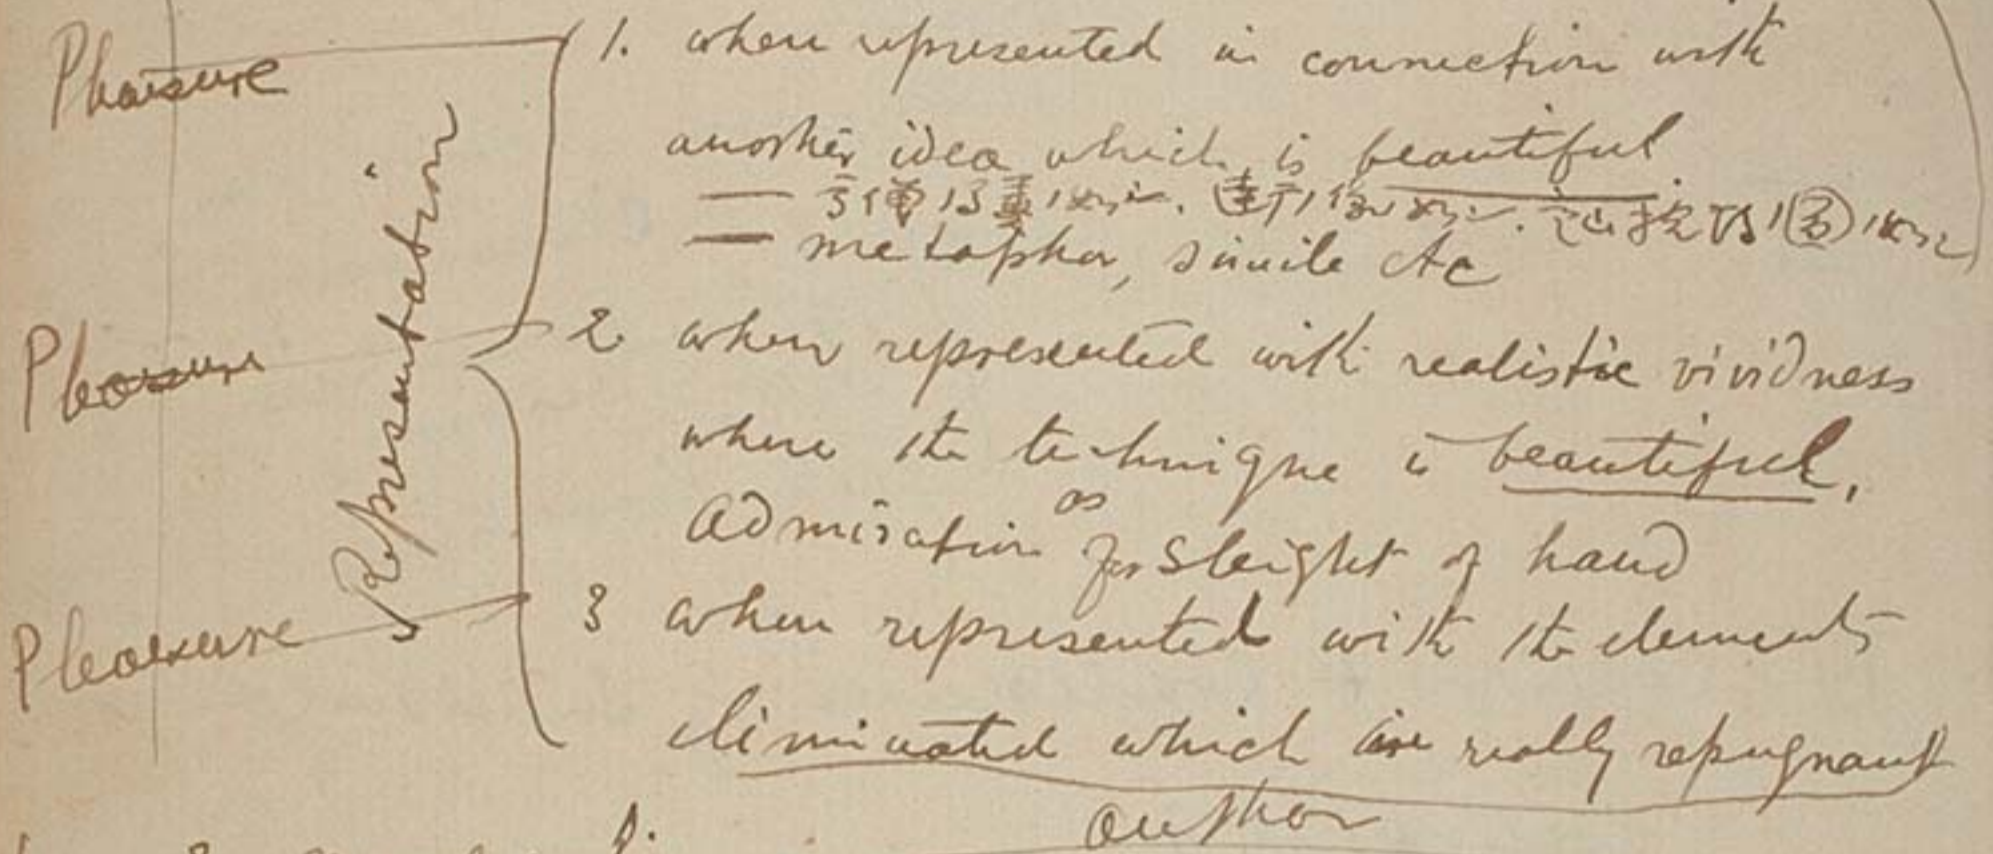 Pleasure
Representation
1. when represented in connection with
another idea which is beautiful
— metaphor, simile etc
Pleasure
2 when represented with realistic vividness
where the technique is beautiful,
admiration as for sleight of hand
Pleasure
3 when represented with the elements
eliminated which are really repugnant
author